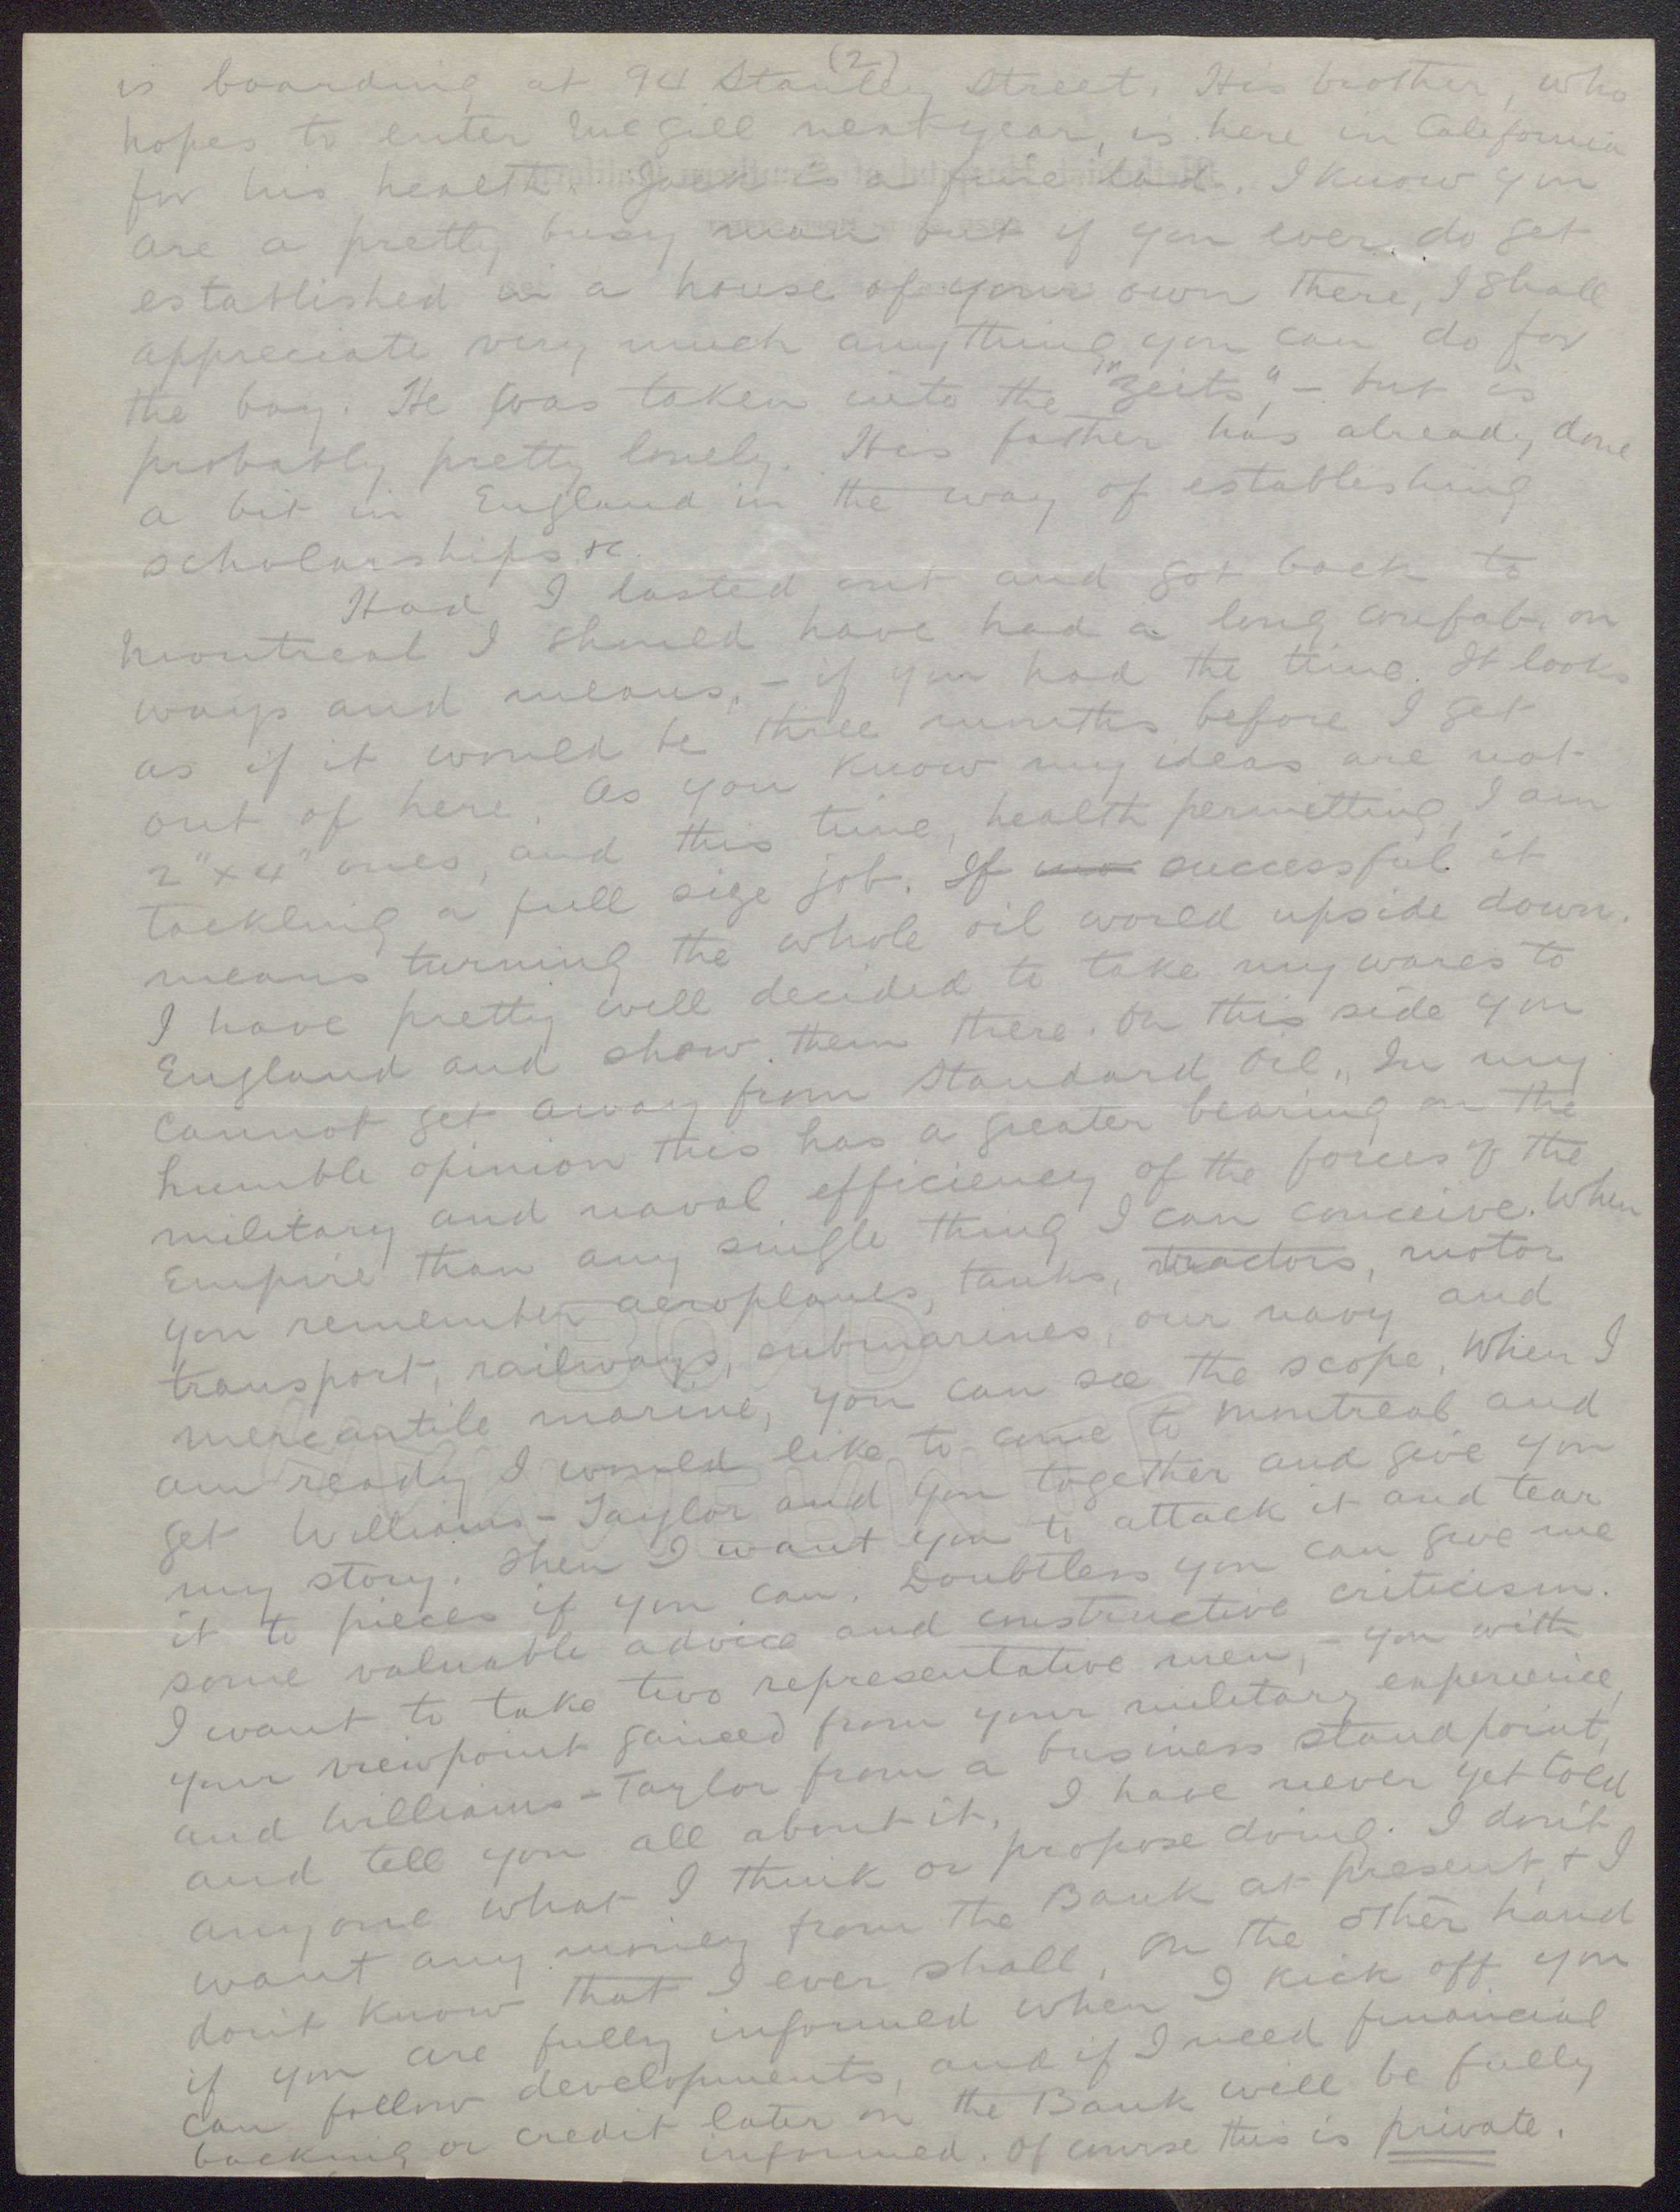 (2)
is boarding at 94 Stanley Street. His brother, who
hopes to enter McGill next year, is here in California
for his health. Jack is a fine lad. I know you
are a pretty busy man but if you ever do get
established in a house of your own there, I shall
appreciate very much anything you can do for
the boy. He was taken into the "Zeits", - but is
probably pretty lonely. His father has already done
a bit in England in the way of establishing
scholarships &c.
Had I lasted out and got back to
Montreal I should have had a long confab. on
ways and means, - if you had the time. It looks
as if it would be three months before I get
out of here. As you know my ideas are not
2" x 4" ones, and this time, health permitting, I am
tackling a full size job. If successful it
means turning the whole oil world upside down.
I have pretty well decided to take my wares to
England and show them there. On this side you
cannot get away from Standard Oil. In my
humble opinion this has a greater bearing on the
military and naval efficiency of the forces of the
Empire than any single thing I can conceive. When
you remember aeroplanes, tanks, tractors, motor
transport, railways, submarines, our navy and
mercantile marine, you can see the scope. When I
am ready I would like to come to Montreal and
get Williams-Taylor and you together and give you
my story. Then I want you to attack it and tear
it to pieces if you can. Doubtless you can give me
some valuable advice and constructive criticism.
I want to take two representative men, - you with
your viewpoint gained from your military experience,
and Williams-Taylor from a business standpoint,
and tell you all about it. I have never yet told
anyone what I think or propose doing. I don't
want any money from the Bank at present, & I
don't know that I ever shall. On the other hand
if you are fully informed when I kick off you
can follow developments, and if I need financial
backing or credit later on the Bank will be fully
informed. Of course this is private.
BOND